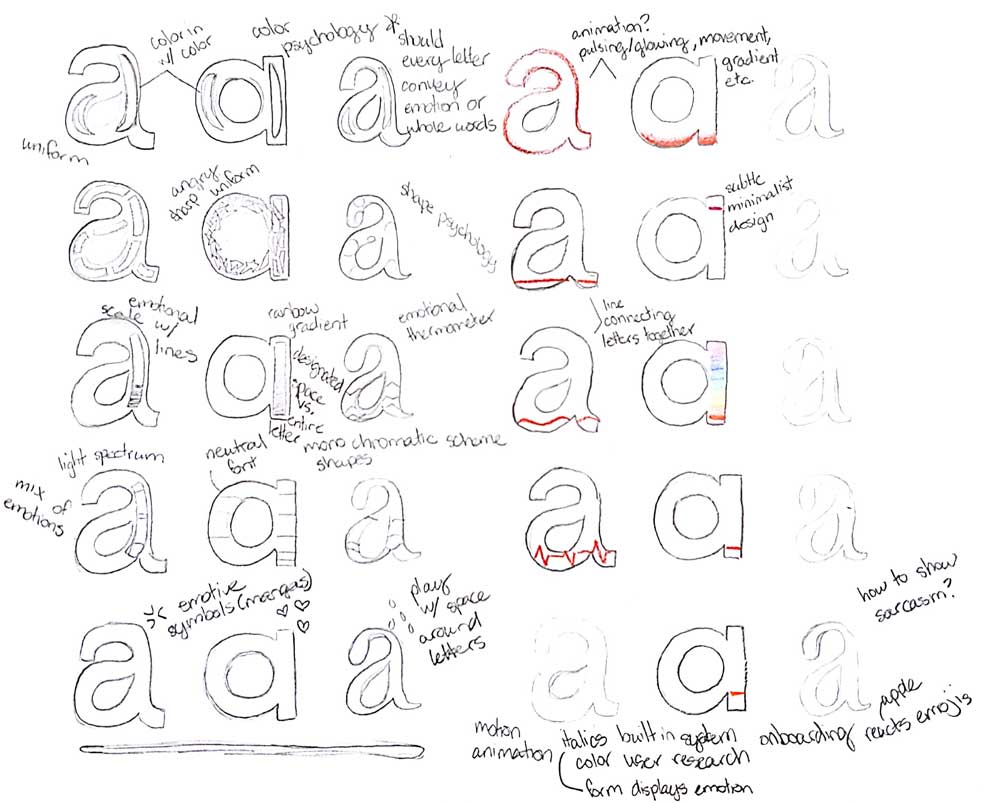 color in
w/ color
color
psychology *
should
every letter
convey
emotion or
whole words
animation?
pulsing/glowing, movement,
gradient
etc.
uniform
angry
sharp uniform
shape psychology
subtle
minimalist
design
emotional
scale w/
lines
rainbow
gradient
designated
space
vs.
entire
letter
emotional
thermometer
line
connecting
letters together
light spectrum
neutral
font
mono chromatic scheme
shapes
mix of
emotions
emotive
symbols (mangas)
play
w/ space
around
letters
how to show
sarcasm?
motion
animation
italics built in system
color user research
form displays emotion
onboarding
apple
reacts emojis